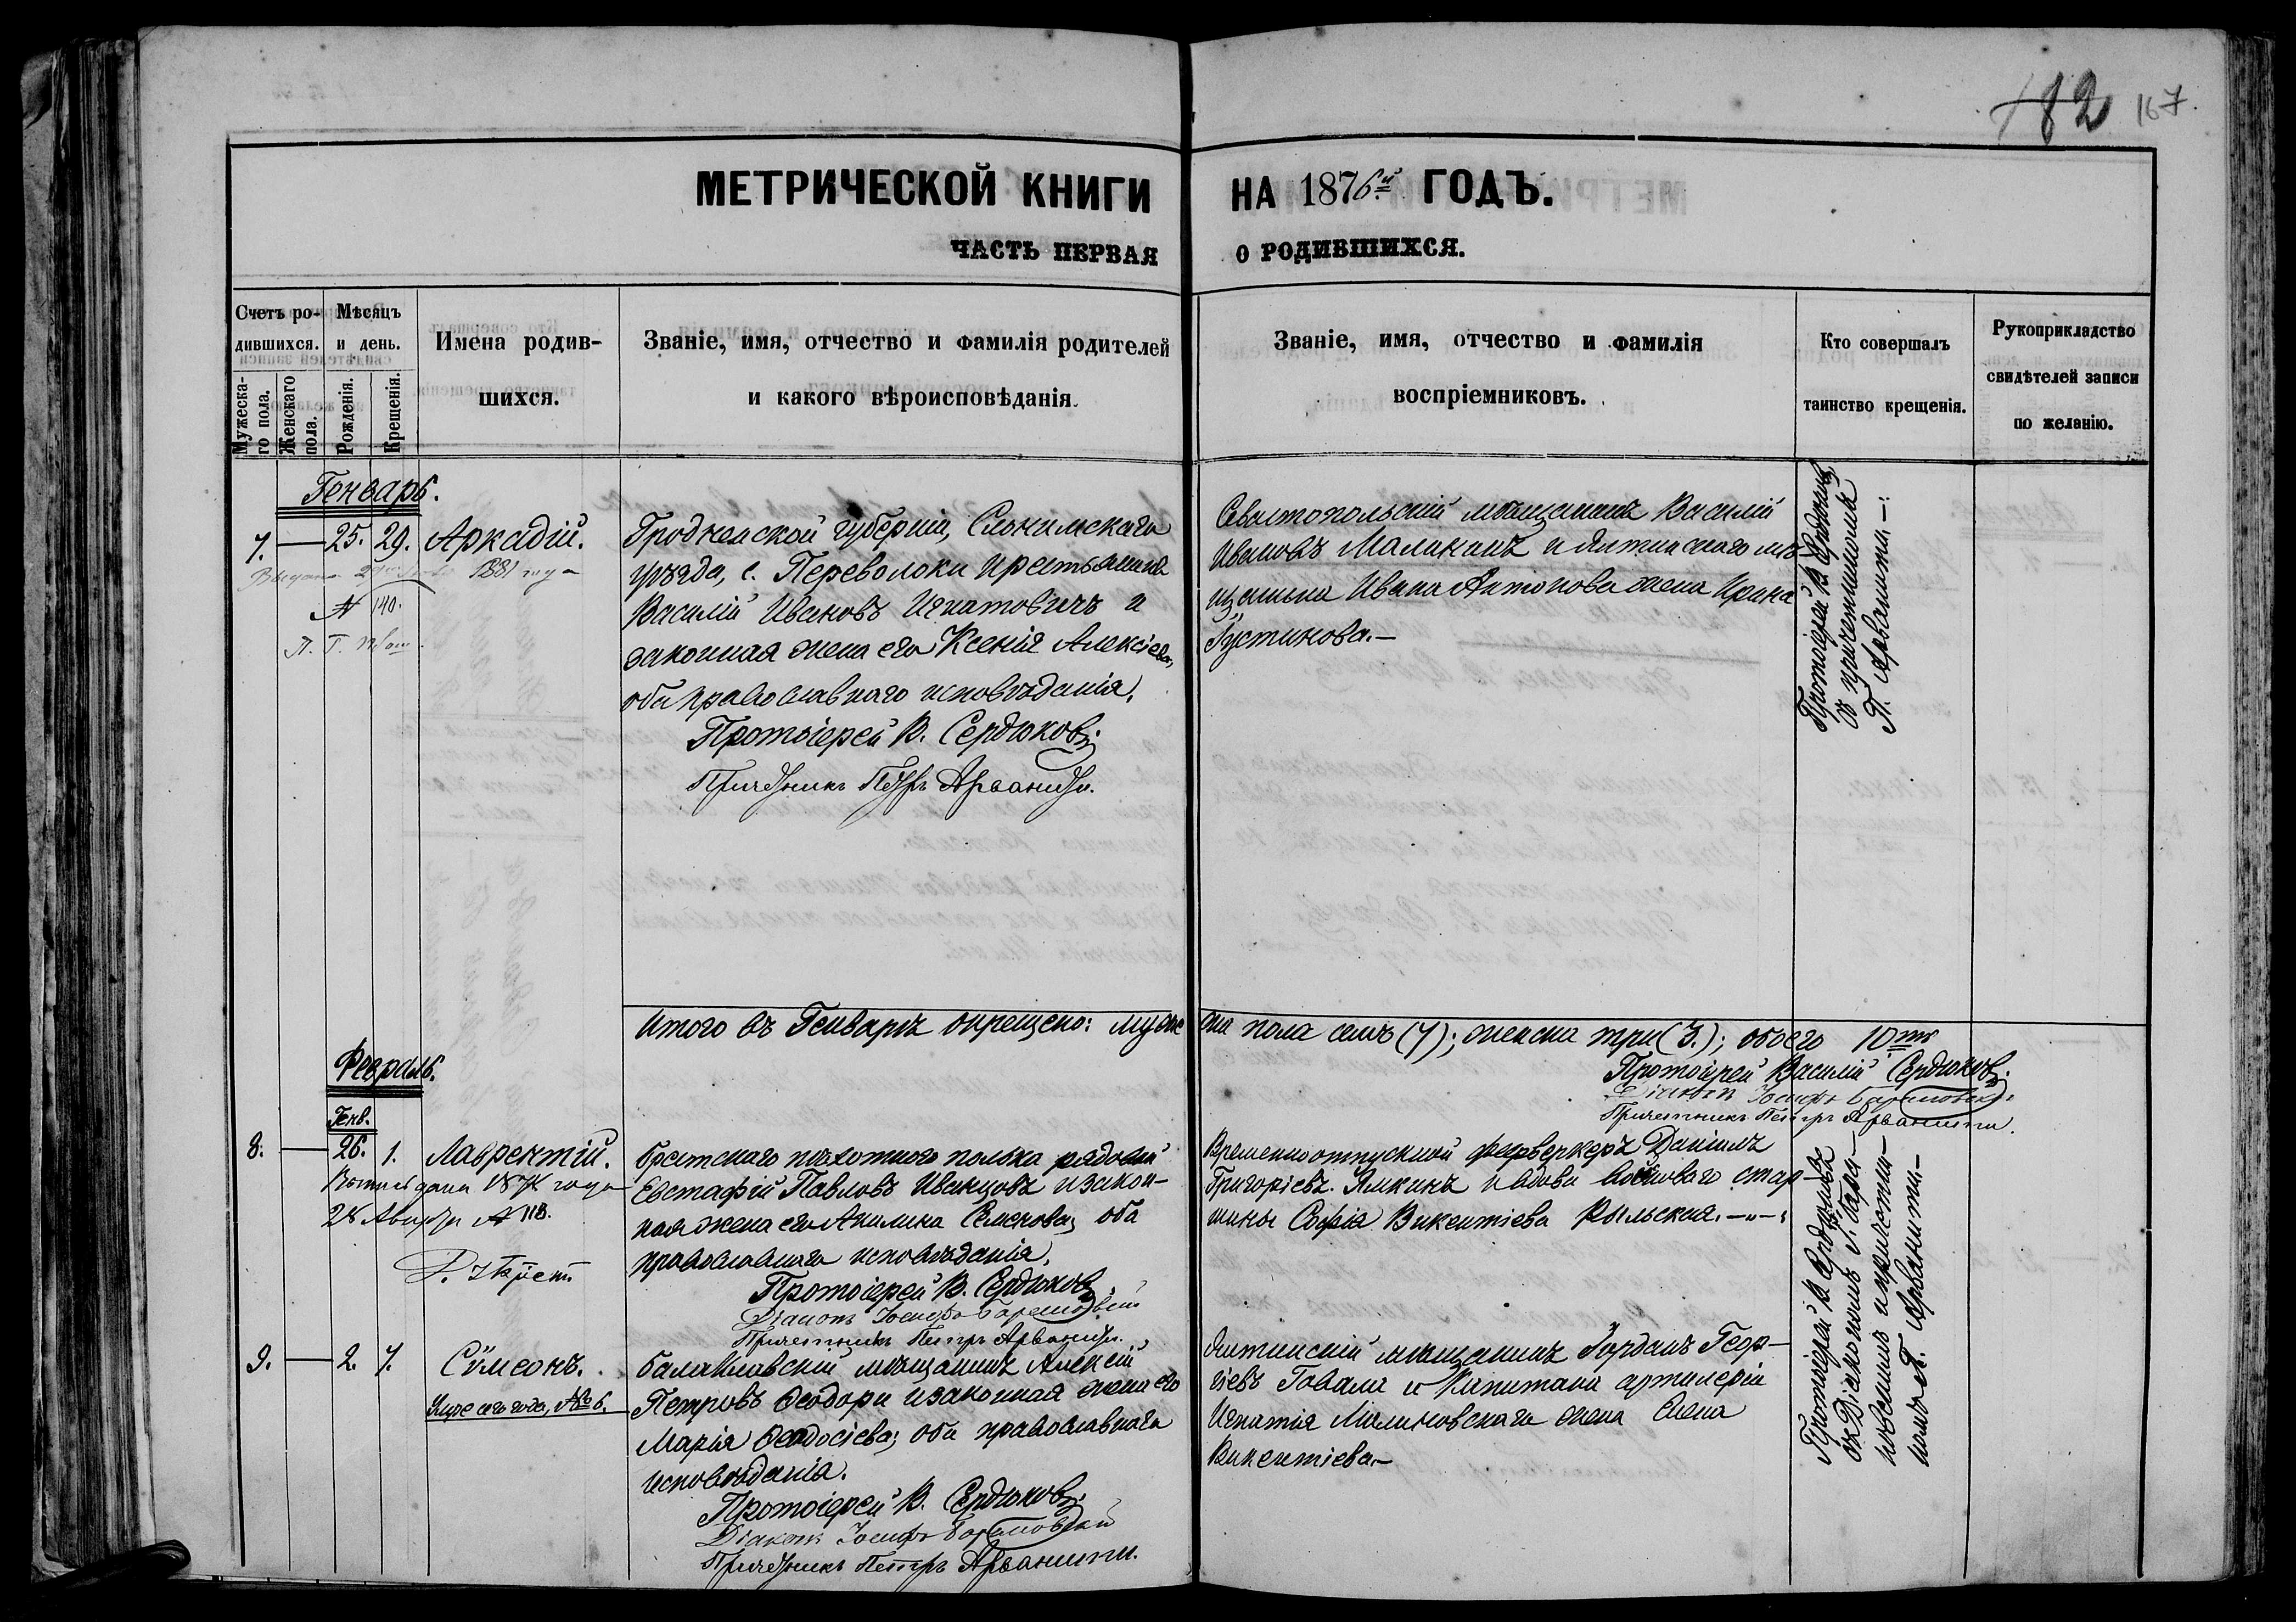 182 167.
МЕТРИЧЕСКОЙ КНИГИ НА 1876й ГОДЪ.
ЧАСТЬ ПЕРВАЯ О РОДИВШИХСЯ.
Счетъ ро-
дившихся.
Мужеска-
го пола.
Женскаго
пола.
Мѣсяцъ
и день.
Рожденія.
Крещенія.
Имена родив-
шихся.
Званіе, имя, отчество и фамилія родителей
и какого вѣроисповѣданія.
Званіе, имя, отчество и фамилія
воспріемниковъ.
Кто совершалъ
таинство крещенія.
Рукоприкладство
свидѣтелей записи
по желанію.
Генварь.
7. — 25. 29. Аркадій.
1881 года
№ 140.
Гродненской губерніи, Слонимскаго
уѣзда, с. Переволоки крестьянинъ
Василій Ивановъ Игнатовичъ и
законная жена его Ксенія Алексіева,
оба православнаго исповѣданія.
Протоіерей В. Сердюковъ.
Причетникъ Петръ Арванити.
Севастопольскій мѣщанинъ Василій
Ивановъ Малаканъ и Ялтинскаго мѣ-
щанина Ивана Антонова жена Ирина
Густинова.—
Протоіерей В. Сердюковъ
съ причетникомъ
П. Арванити.—
Итого въ Генварѣ окрещено: муже
ска пола семь (7); женска три (3.); обоего 10ть
Протоіерей Василій Сердюковъ.
Діаконъ Іосифъ
Причетникъ Петръ Арванити.
Февраль.
Генв.
8. — 26. 1. Лаврентій.
года
№ 118.
Брестскаго пѣхотнаго полка рядовой
Евстафій Павловъ Иванцовъ и закон-
ная жена его Акилина Семенова, оба
православнаго исповѣданія.
Протоіерей В. Сердюковъ.
Діаконъ Іосифъ
Причетникъ Петръ Арванити.
Временноотпускной фейерверкеръ Даніилъ
Григоріевъ Ямкинъ и вдова
Софія Викентіева Рыльская.—"—
9. — 2. 7. Сѵмеонъ.
Умре сего года, № 6.
Балаклавскій мѣщанинъ Алексій
Петровъ Ѳеодори и законная жена его
Марія Ѳеодосіева; оба православнаго
исповѣданія.
Протоіерей В. Сердюковъ.
Діаконъ Іосифъ
Причетникъ Петръ Арванити.
Ялтинскій мѣщанинъ Іорданъ Геор-
гіевъ Гавала и Капитана артилеріи
Игнатія Малиновскаго жена Елена
Викентіева.—
Протоіерей В. Сердюковъ
съ Діакономъ І.
и причетни-
комъ П. Арванити.—